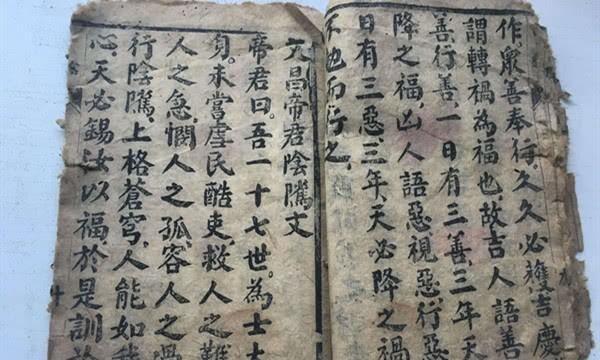 作,衆善奉行,久久必獲吉慶
謂轉禍為福也故吉人語善
善行善一日有三善,三年天
降之福,凶人語惡視惡,行惡
日有三惡,三年,天必降之禍
不勉而行之
文昌帝君陰隲文
帝君曰。吾一十七世。為士大
身。未嘗虐民酷吏,救人之難
人之急,憫人之孤,容人之過
行陰隲上格蒼穹,人能如我
心,天必錫汝以福,於是訓於